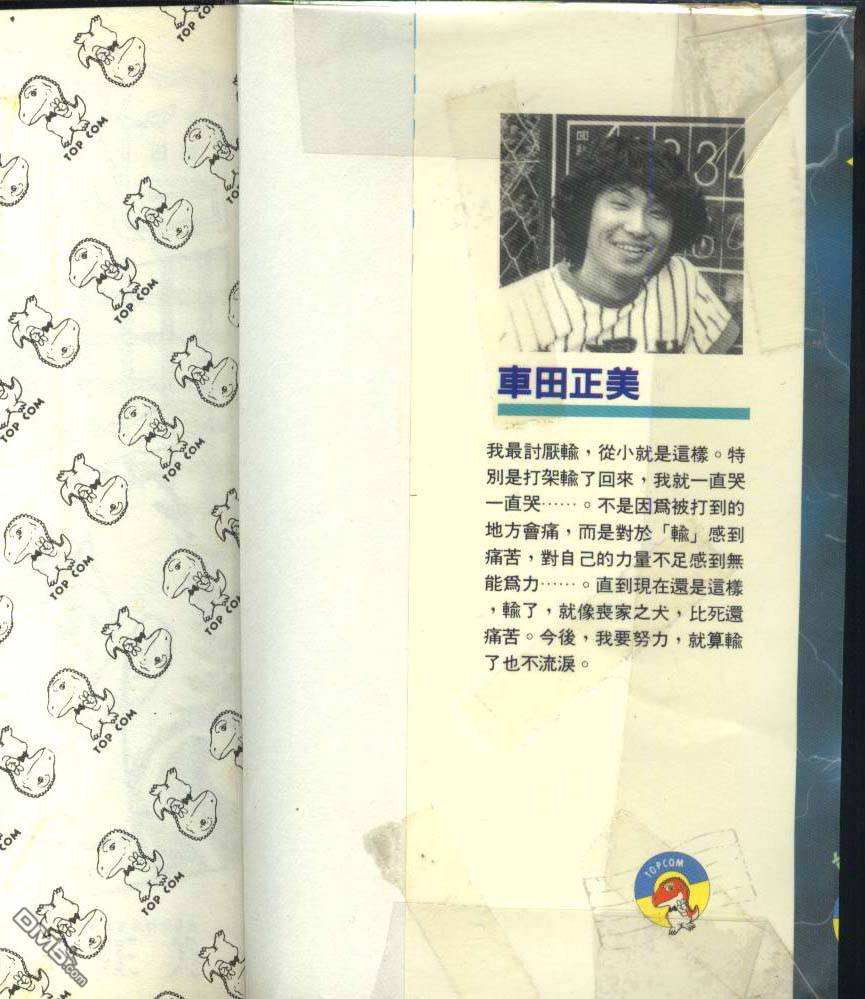 TOP COM
TOP COM
TOP COM
TOP COM
TOP COM
TOP COM
TOP COM
TOP COM
TOP COM
DM5.com
1 2 3 4
車田正美
我最討厭輸，從小就是這樣。特
別是打架輸了回來，我就一直哭
一直哭……。不是因爲被打到的
地方會痛，而是對於「輸」感到
痛苦，對自己的力量不足感到無
能爲力……。直到現在還是這樣
，輸了，就像喪家之犬，比死還
痛苦。今後，我要努力，就算輸
了也不流淚。
TOPCOM